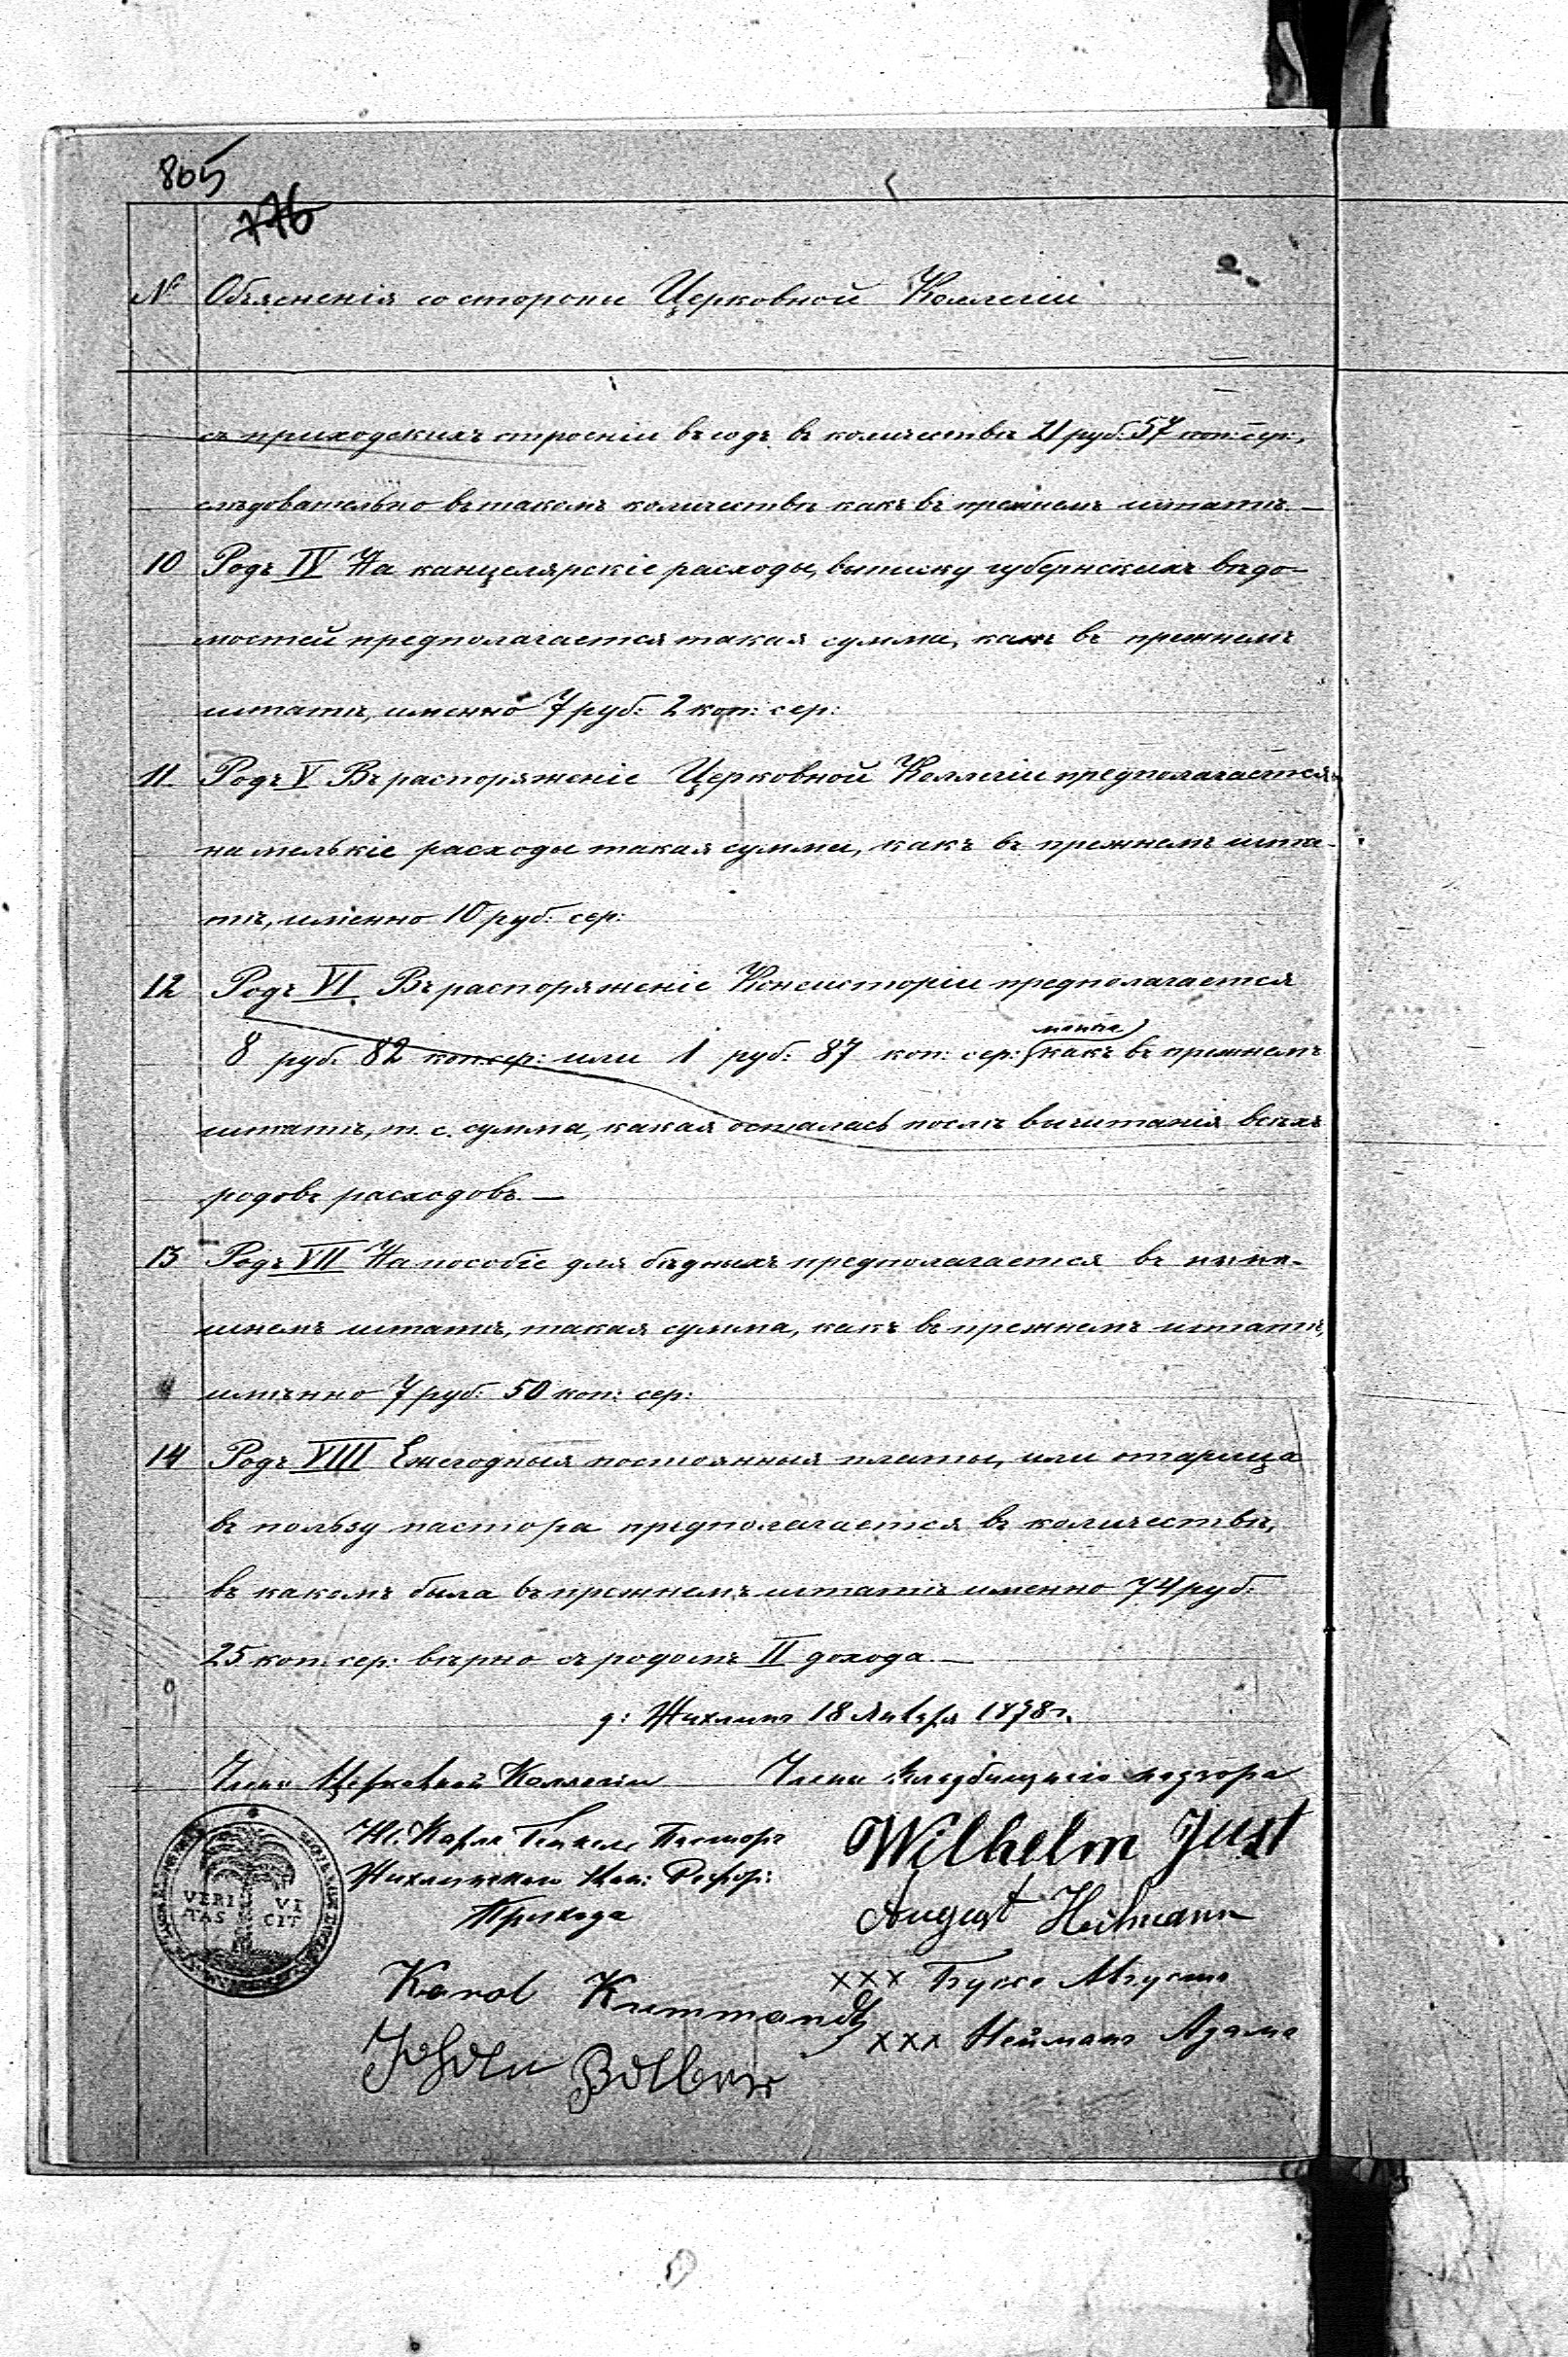 805
776
№ Объясненія со стороны Церковной Коллегіи
съ приходскихъ строеній въ годъ въ количествѣ 21 руб: 57 коп: сер:,
слѣдовательно въ такомъ количествѣ какъ въ прежнемъ штатѣ.—
10 Родъ IV На канцелярскіе расходы, выписку губернскихъ вѣдо-
мостей предполагается такая сумма, какъ въ прежнемъ
штатѣ, именно 7 руб: 2 коп: сер:
11. Родъ V Въ распоряженіе Церковной Коллегіи предполагается
на мелькіе расходы такая сумма, какъ въ прежнемъ шта-
тѣ, именно 10 руб: сер:
12 Родъ VI. Въ распоряженіе Консисторіи предполагается
менѣе
8 руб: 82 коп: сер: или 1 руб: 87 коп: сер: какъ въ прежнемъ
штатѣ, т. е. сумма, какая осталась послѣ вычитанія всѣхъ
родовъ расходовъ.—
13 Родъ VII На пособіе для бѣдныхъ предполагается въ нынѣ-
шнемъ штатѣ, такая сумма, какъ въ прежнемъ штатѣ,
имѣнно 7 руб: 50 коп: сер:
14 Родъ VIII Ежегодныя постоянныя платы, или
въ пользу пастора предполагается въ количествѣ,
въ какомъ была въ прежнемъ штатѣ именно 74 руб:
25 коп: сер: вѣрно съ родомъ II дохода.—
д: Жихлинъ 18 Января 1878 г.
Члены Церковной Коллегіи Члены Кладбищнаго надзора
Карлъ Пасторъ Wilhelm Just
Жихлинскаго Рефор:
Прихода August Heilmann
VERI TAS VI CIT
Karol xxx Августъ
xxx Нейманъ Адамъ